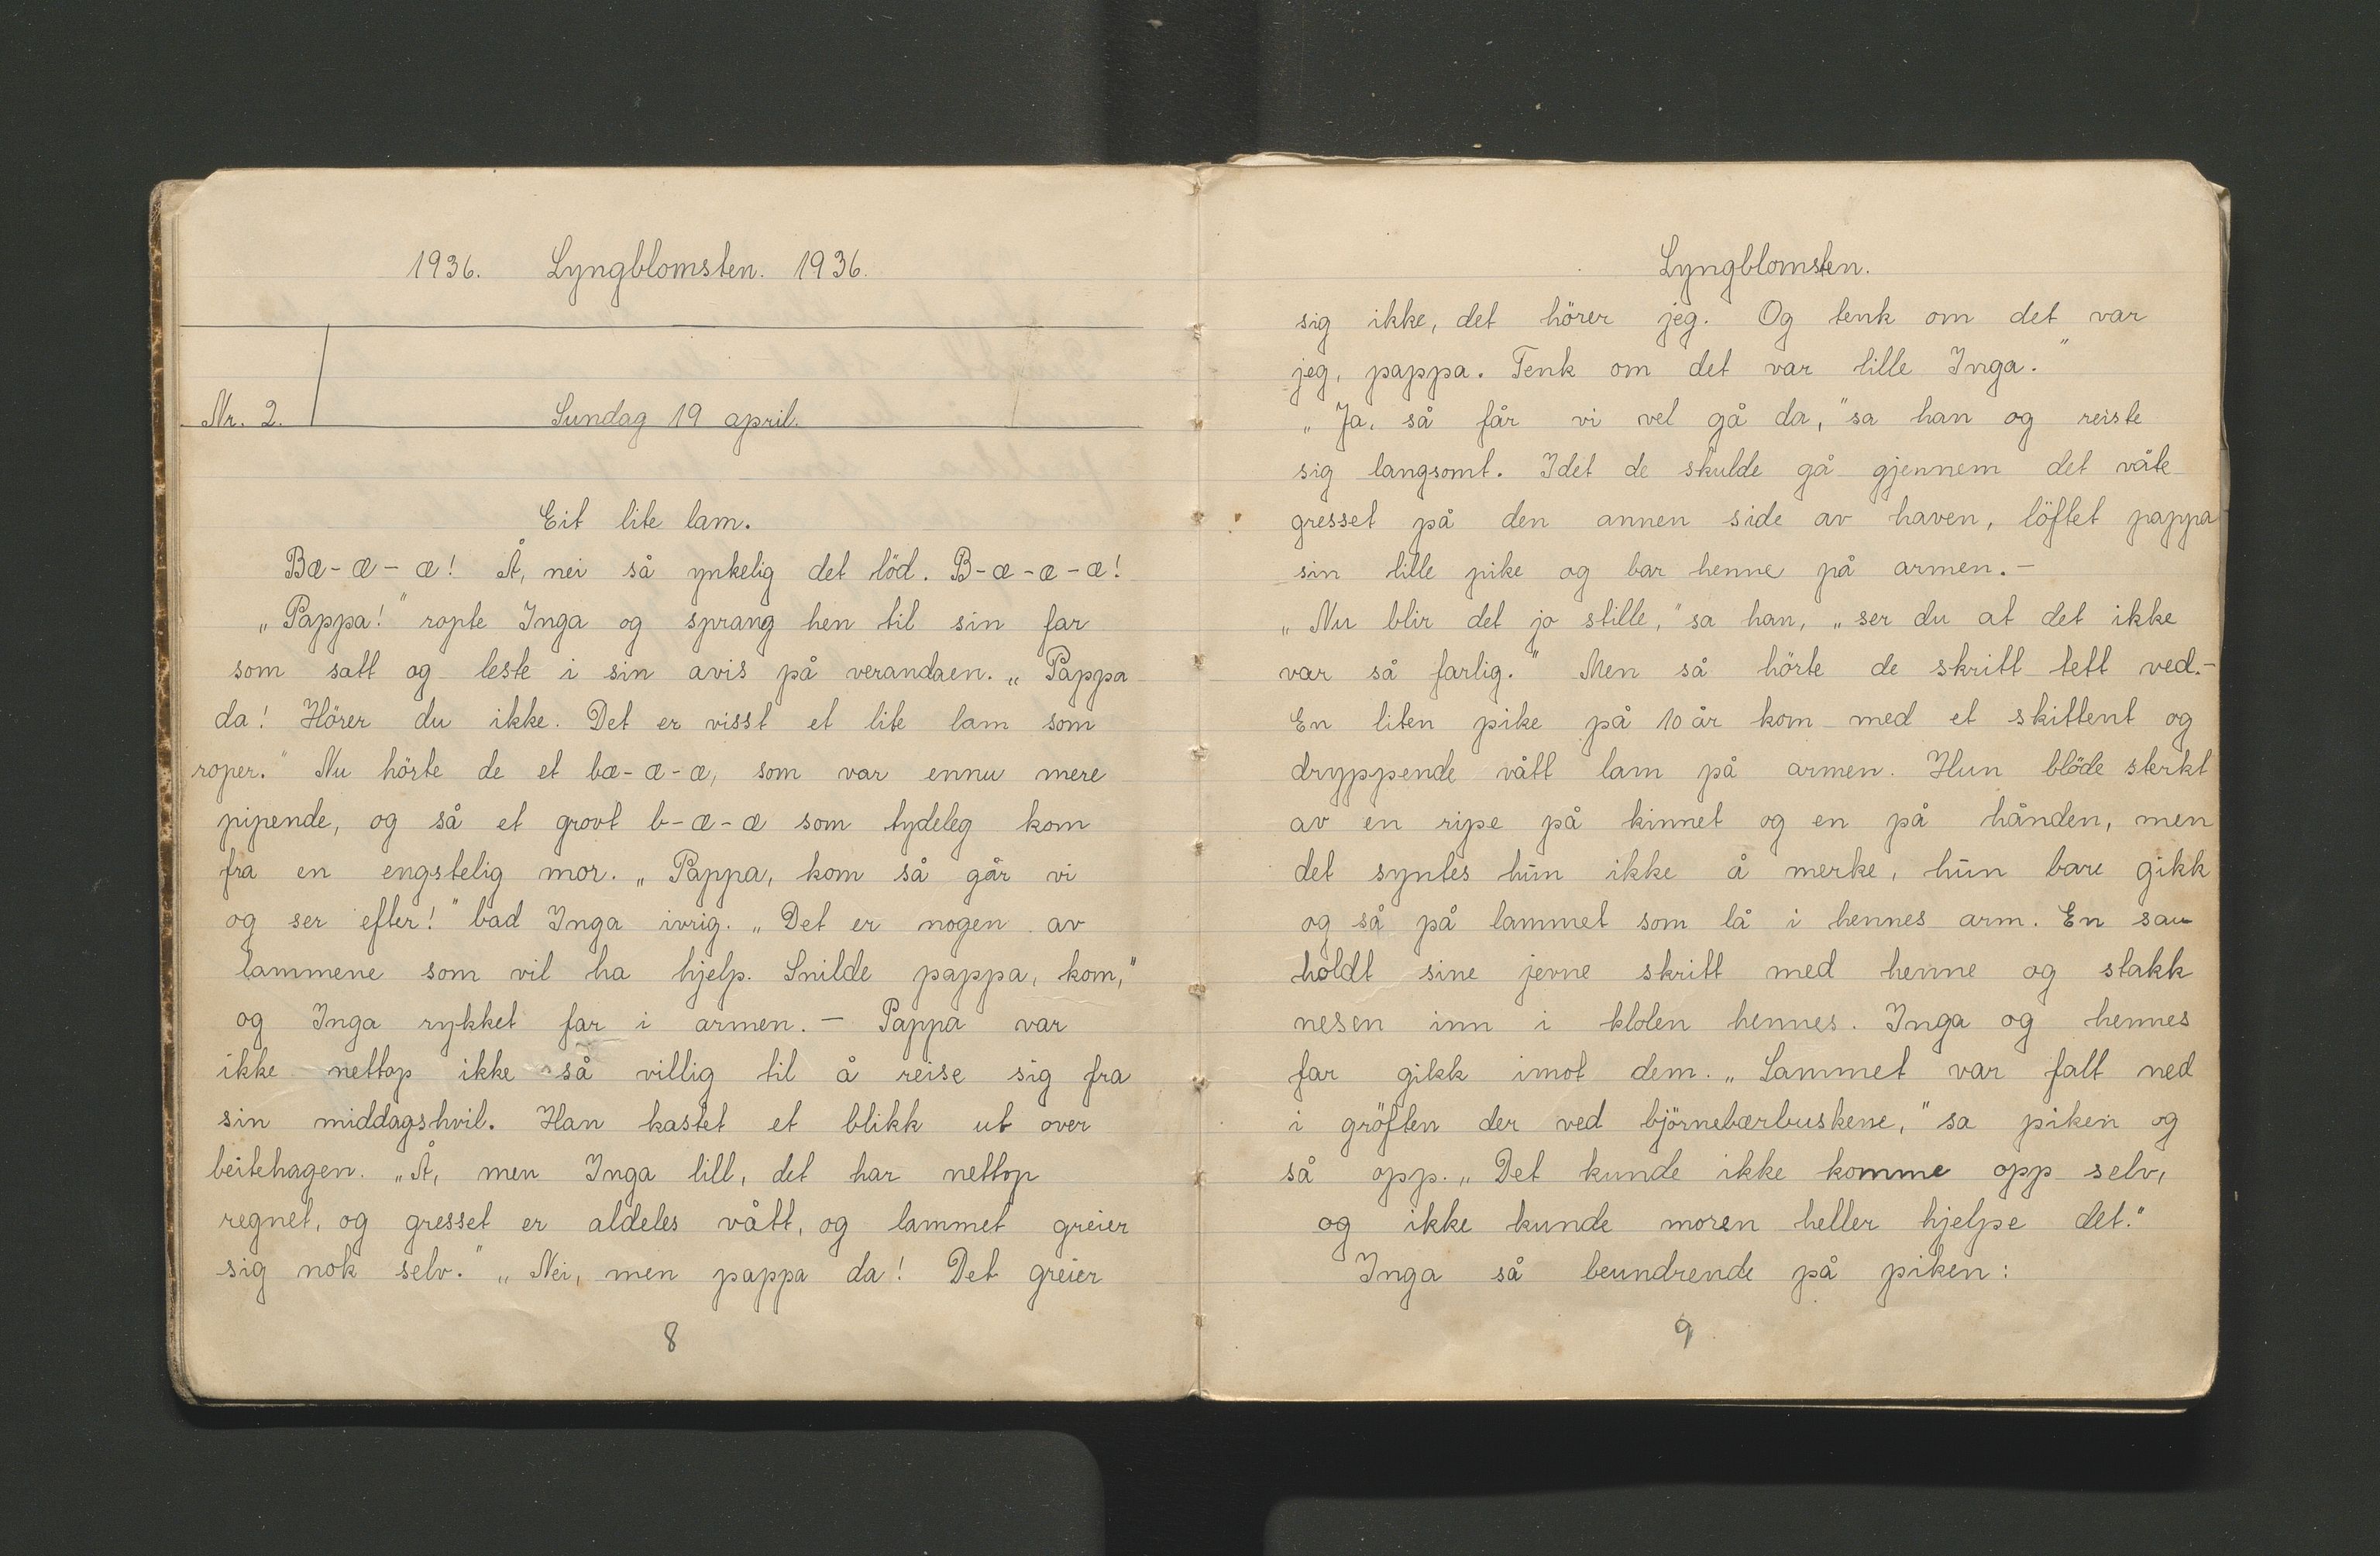 1936. Lyngblomsten. 1936.
Nr. 2. Sundag 19 april.
Eit lite lam.
Bæ-æ-æ! Å, nei så ynkelig det löd. B-æ-æ-æ!
„Pappa!" ropte Inga og sprang hen til sin far
som satt og leste i sin avis på verandaen. „Pappa
da! Hörer du ikke. Det er visst et lite lam som
roper." Nu hörte de et bæ-æ-æ, som var ennu mere
pipende, og så et grovt b-æ-æ som tydeleg kom
fra en engstelig mor. „Pappa, kom så går vi
og ser efter!" bad Inga ivrig. „Det er nogen av
lammene som vil ha hjelp. Snilde pappa, kom,"
og Inga rykket far i armen. — Pappa var
ikke nettop ikke så villig til å reise sig fra
sin middagshvil. Han kastet et blikk ut over
beitehagen. „Å, men Inga lill, det har nettop
regnet, og gresset er aldeles vått, og lammet greier
sig nok selv." „Nei, men pappa da! Det greier
8
Lyngblomsten.
sig ikke, det hörer jeg. Og tenk om det var
jeg, pappa. Tenk om det var lille Inga."
„Ja, så får vi vel gå da," sa han og reiste
sig langsomt. Idet de skulde gå gjennem det våte
gresset på den annen side av haven, löftet pappa
sin lille pike og bar henne på armen. —
„Nu blir det jo stille," sa han, „ser du at det ikke
var så farlig." Men så hörte de skritt tett ved. —
En liten pike på 10 år kom med et skittent og
dryppende vått lam på armen. Hun blöde sterkt
av en ripe på kinnet og en på hånden, men
det syntes hūn ikke å merke, hūn bare gikk
og så på lammet som lå i hennes arm. En sau
holdt sine jevne skritt med henne og stakk
nesen inn i klolen hennes. Inga og hennes
far gikk imot dem. „Lammet var falt ned
i gröften der ved björnebærbuskene," sa piken og
så opp. „Det kunde ikke komme opp selv,
og ikke kunde moren heller hjelpe det."
Inga så beundrende på piken:
9